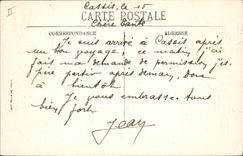 II
Cassis, le 15
CARTE POSTALE
Chère Tante
CORRESPONDANCE
ADRESSE
Je suis arrivé à Cassis après
un bon voyage, ce matin, j'ai
fait ma demande de permission, j'es-
père partir après demain, Donc
à bientôt
Je vous embrasse tous
bien fort
Jean